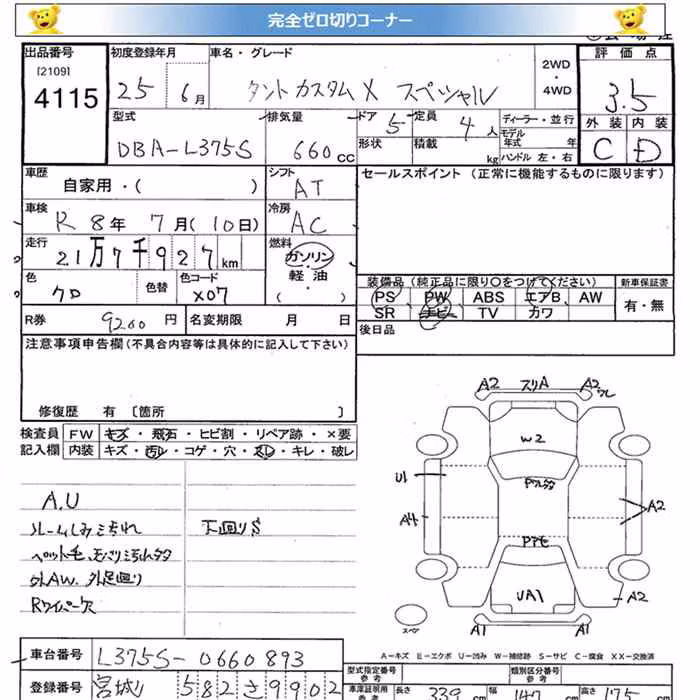 完全ゼロ切りコーナー
出品番号
[2109]
4115
初度登録年月
25 6月
車名・グレード
タント カスタム X スペシャル
2WD
・
4WD
評価点
3.5
外装 内装
C D
型式
DBA-L375S
排気量
660cc
ドア 5
形状
定員 4人
積載 kg
ディーラー・並行
モデル
年式 年
ハンドル 左・右
車歴
自家用・( )
シフト
AT
セールスポイント (正常に機能するものに限ります)
車検
R 8年 7月(10日)
冷房
AC
走行
21万7千927km
燃料
ガソリン
・
軽油
( ・ )
色
クロ
色替
色コード
X07
装備品(純正品に限り○をつけてください)
PS PW ABS エアB AW
SR ナビ TV カワ
新車保証書
有・無
R券 9260円
名変期限 月 日
後日品
注意事項申告欄(不具合内容等は具体的に記入して下さい)
修復歴 有 [箇所 ]
検査員
記入欄
FW キズ・飛石・ヒビ割・リペア跡・×要
内装 キズ・汚レ・コゲ・穴・スレ・キレ・破レ
A.U
ルームしみ汚れ
下回りS
外AW、外足回り
Rワイパー欠
A2 スリA A2
W2
U1
A4
A2
UA1
A2
スペア
A1 A1
A−キズ E−エクボ U−凹み W−補修跡 S−サビ C−腐食 XX−交換済
車台番号
L375S-0660893
登録番号
宮城 582 さ 9902
型式指定番号
参考
類別区分番号
参考
車庫証明用
参考
長さ 339cm 幅 147 高さ 175cm